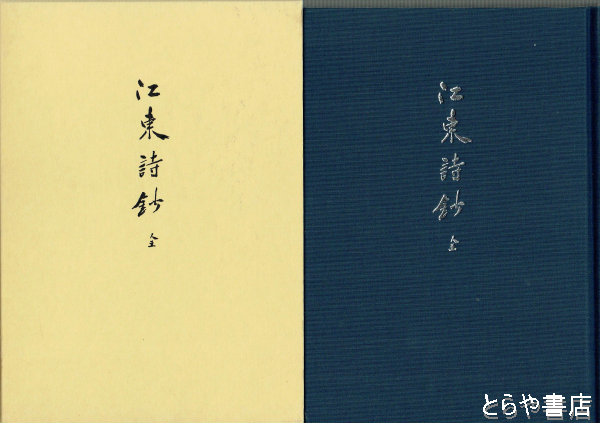 江東詩鈔 全
江東詩鈔 全
とらや書店